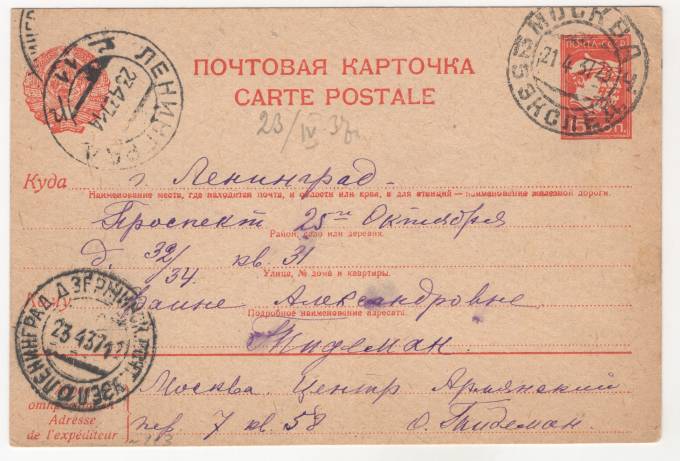 МОСКВА
21 4 37
ЭКСПЕД
ПОЧТА
ЛЕНИНГРАД
23 4 37
ПОЧТОВАЯ КАРТОЧКА
CARTE POSTALE
23/IV 37г.
Куда г. Ленинград.
Наименование места, где находится почта, и области или края, а для станций — наименование железной дороги.
Проспект 25го Октября
Район, село или деревня.
д. 32/34. кв. 31
Улица, № дома и квартиры.
Кому Александровне
Подробное наименование адресата.
Тидеман.
ЛЕНИНГРАД ДЗЕРЖИНСК ПОЧТ. УЗЕЛ
23 4 37
Москва. Центр Армянский
пер 7 кв. 58 О. Тидеман.
Adresse
de l'expéditeur